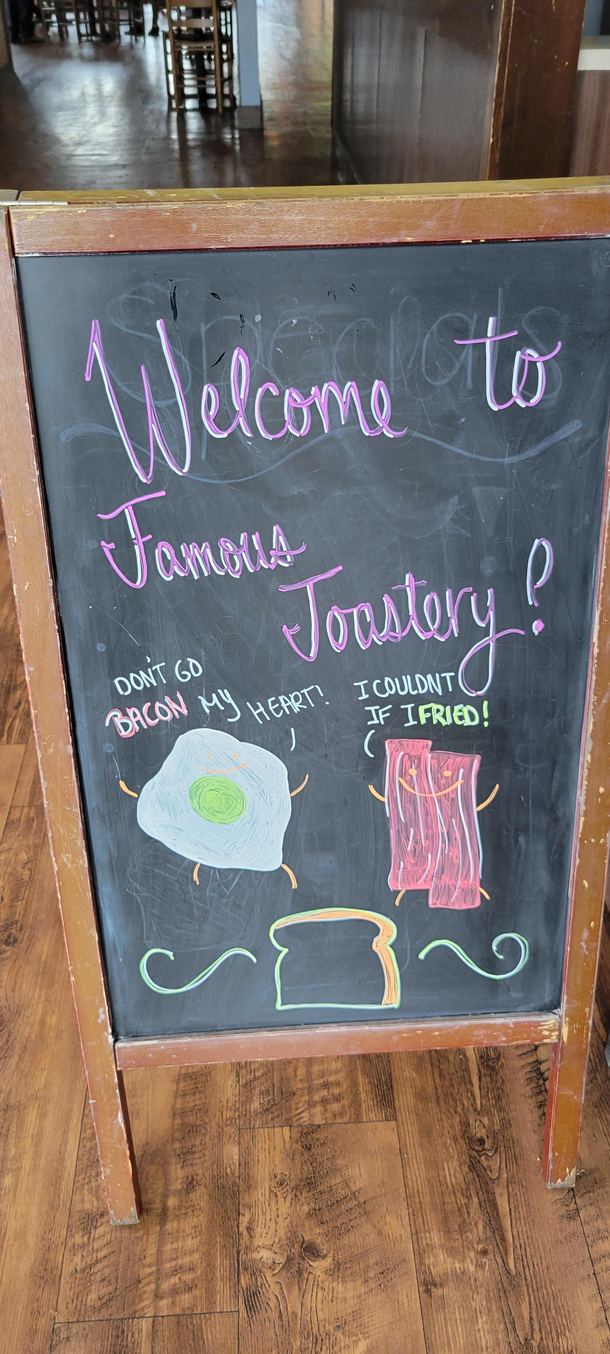 Specials
Welcome to
Famous
Toastery!
DON'T GO
BACON MY HEART!
I COULDNT
IF I FRIED!